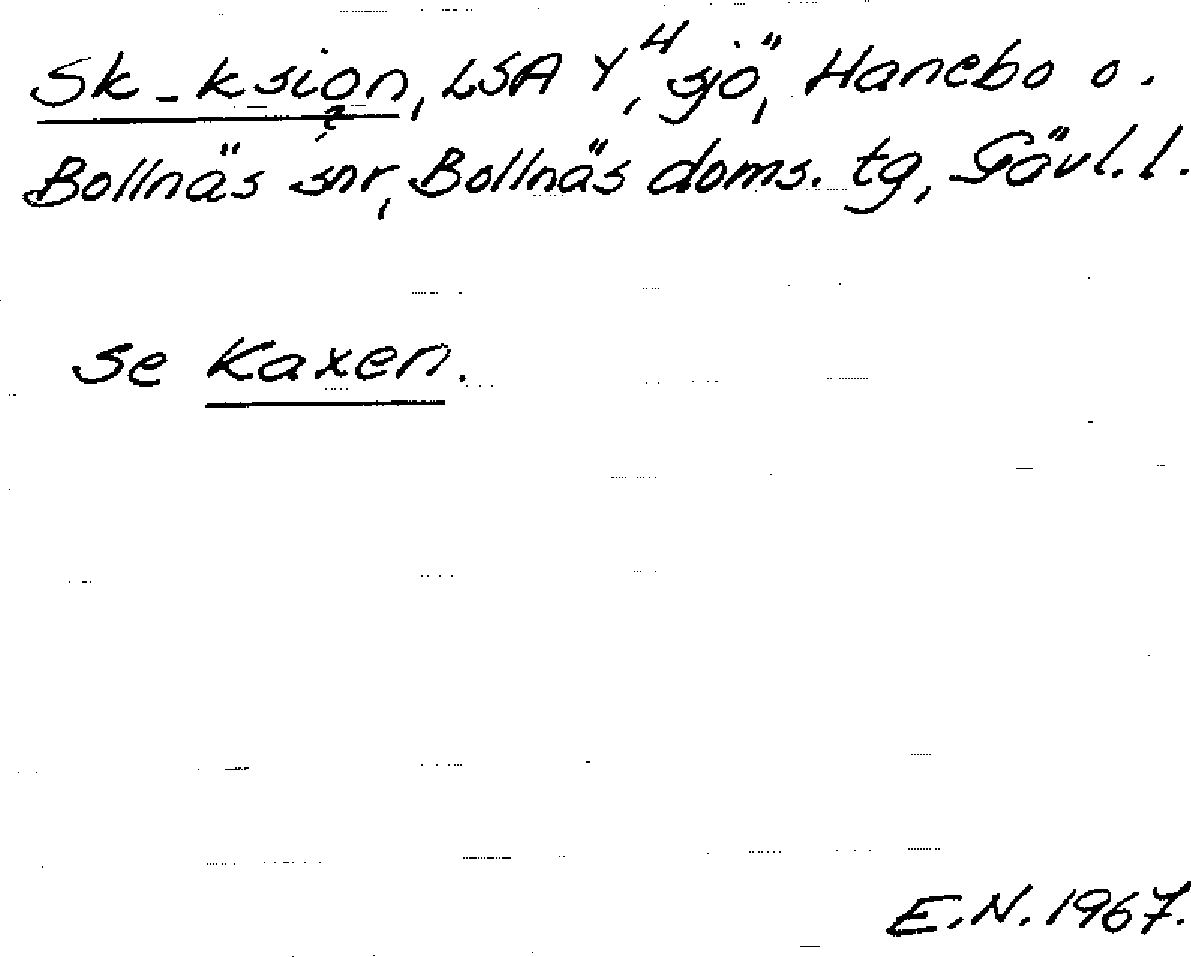 Sk_ksiọn, LSA Y⁴, sjö, Hanebo o.
Bollnäs snr, Bollnäs doms. tg, Gävl. l.
se Kaxen.
E.N. 1967.